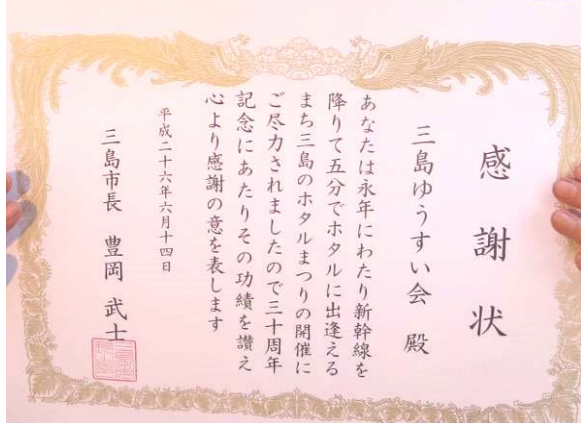 感謝状
三島ゆうすい会 殿
あなたは永年にわたり新幹線を
降りて五分でホタルに出逢える
まち三島のホタルまつりの開催に
ご尽力されましたので三十周年
記念にあたりその功績を讃え
心より感謝の意を表します
平成二十六年六月十四日
三島市長 豊岡 武士